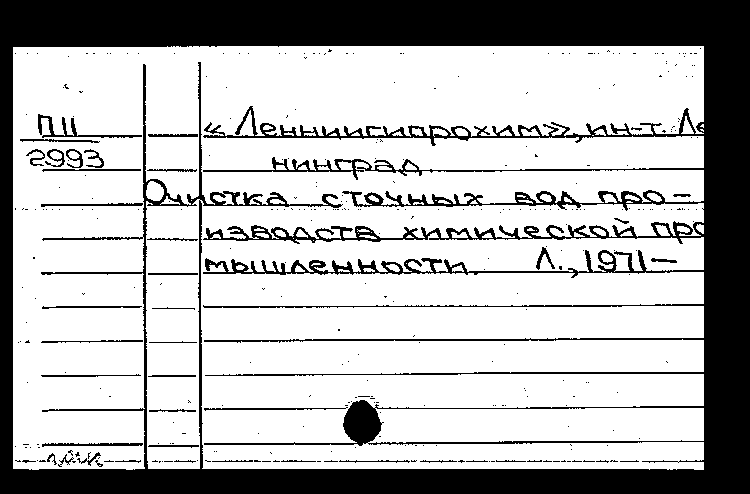 П11
2993
«Ленниигипрохим», ин-т. Ле
нинград.
Очистка сточных вод про-
изводств химической про
мышленности. Л., 1971—